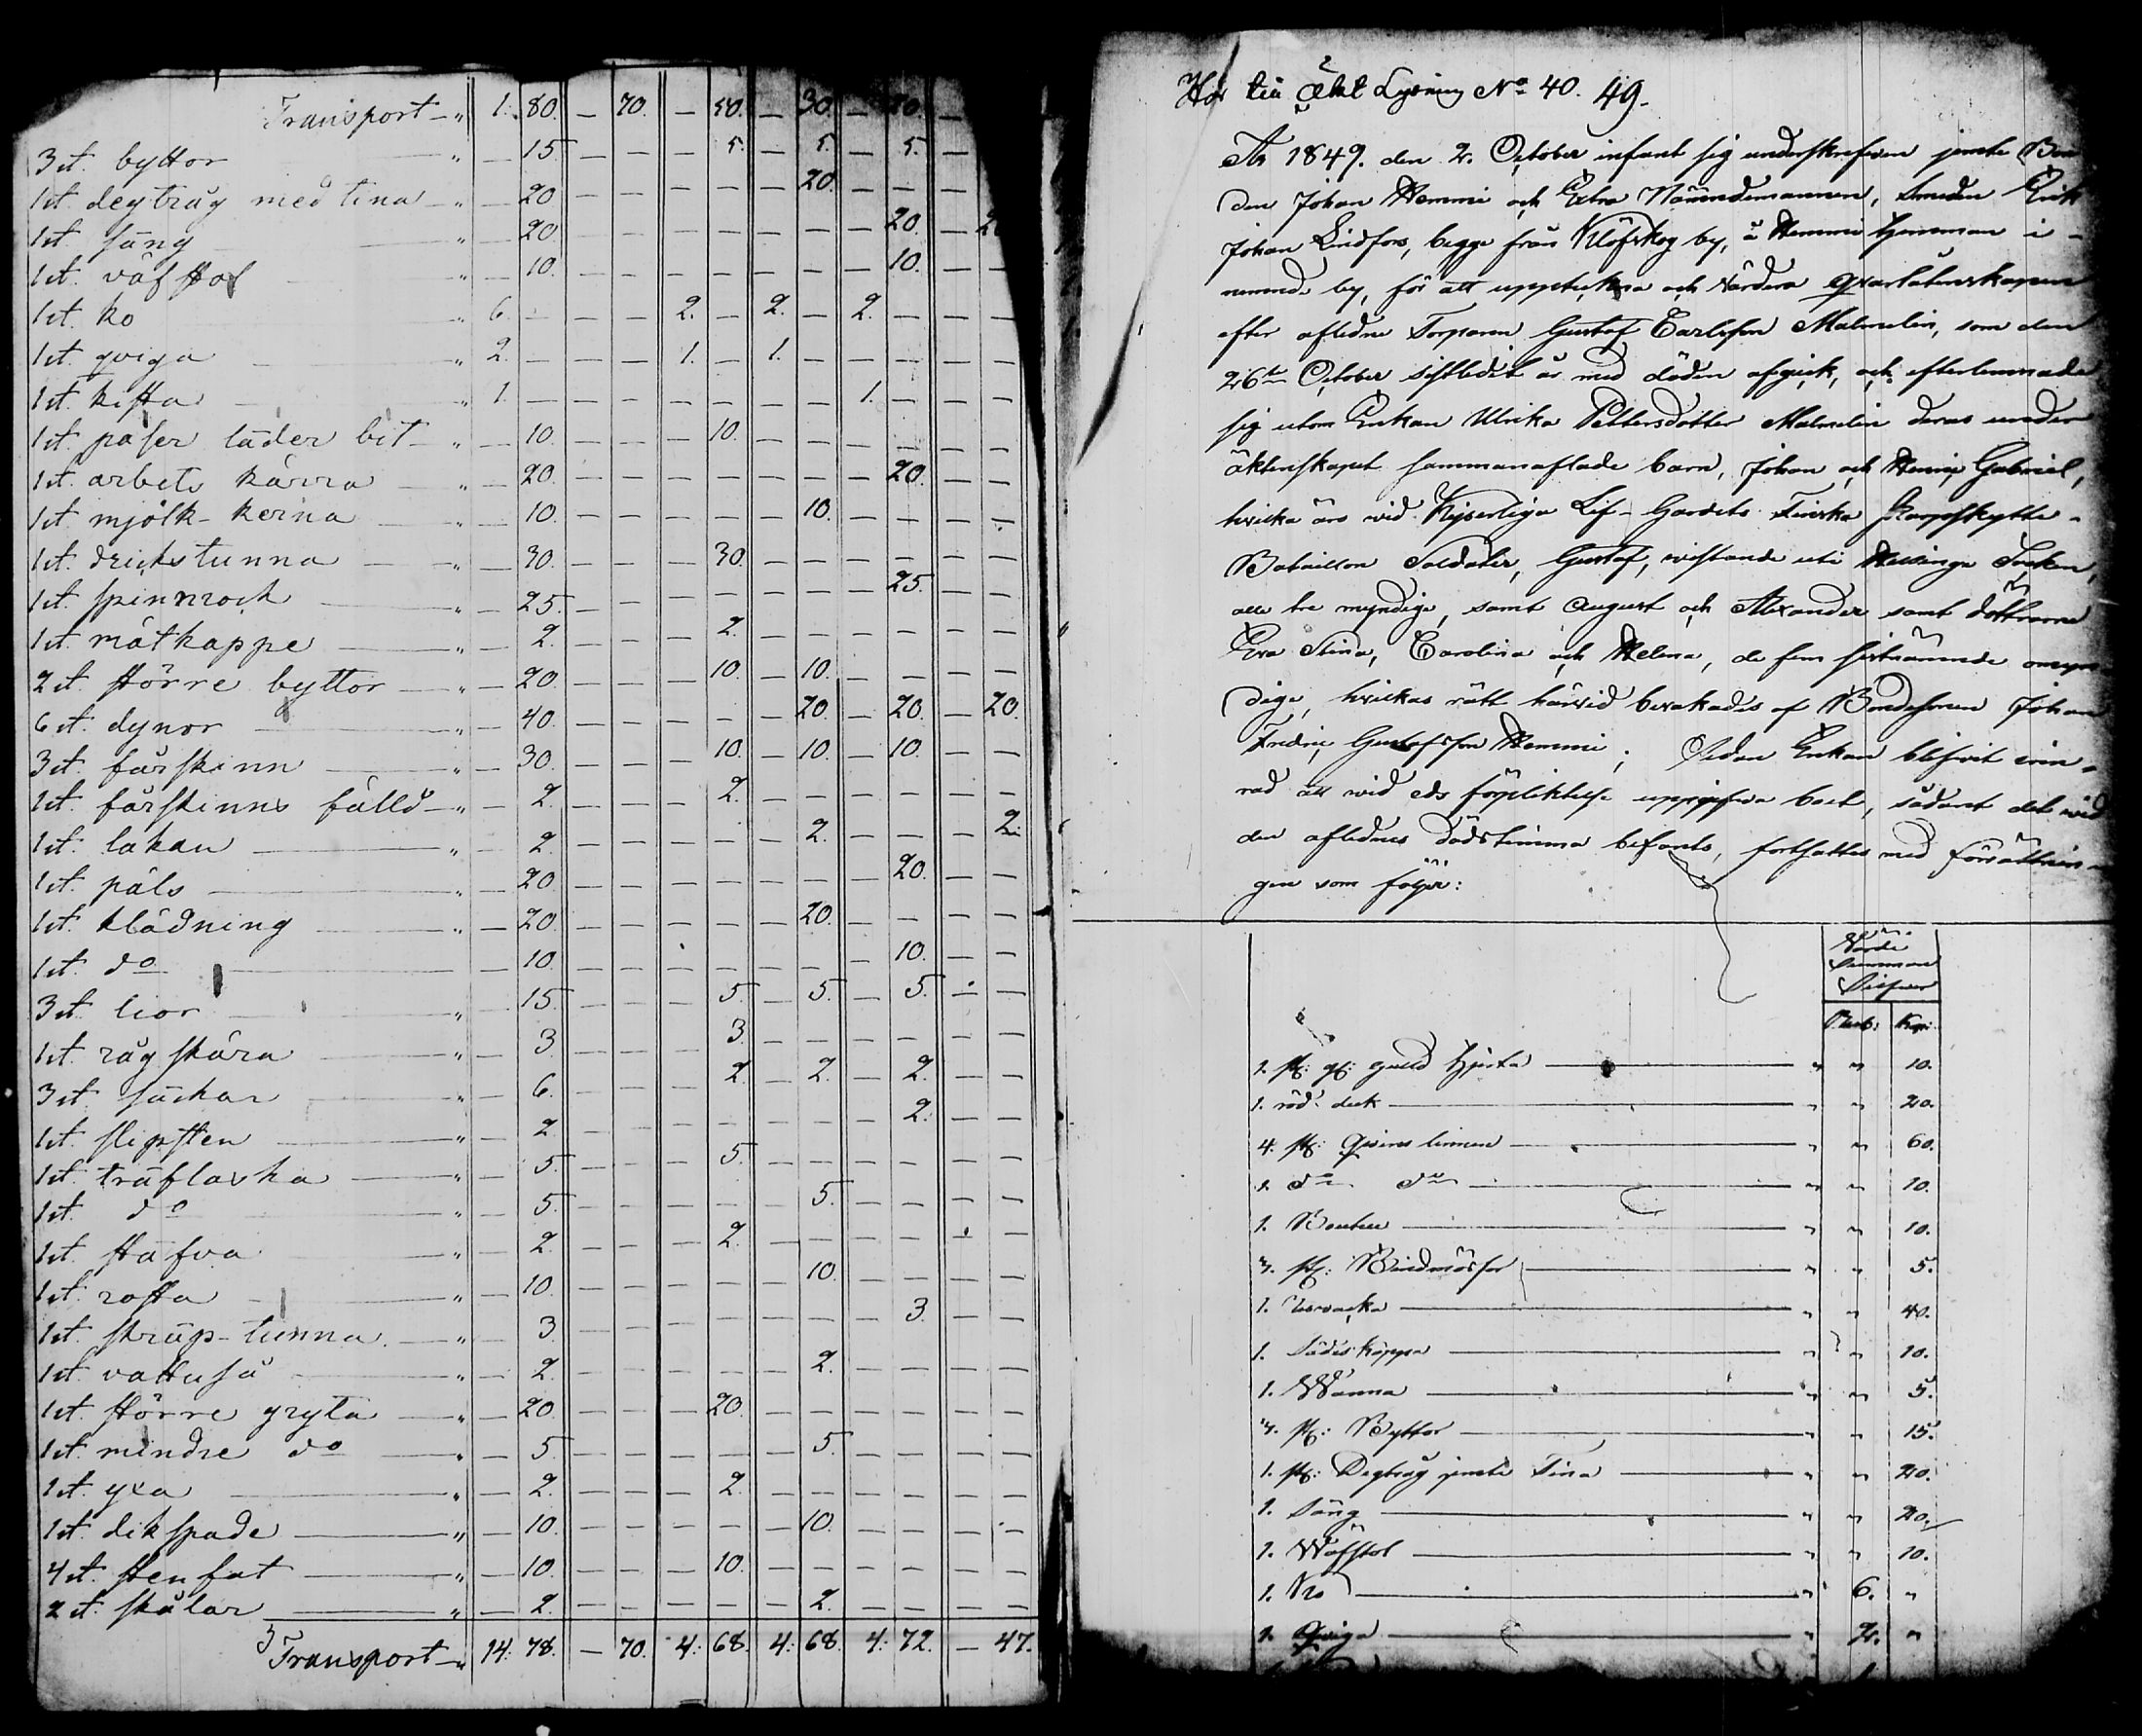 Transport „ 1: 80. — 70. — 50. — 30. — 20. —
3 st. byttor „ — 15 — — — 5. — 5. — 5. — —
1 st. degtråg med tina „ — 20 — — — — — 20 — — —
1 st. säng „ — 20. — — — — — — — 20. — 20
1 st. väfstol „ — 10. — — — — — — — 10. — —
1 st. ko „ 6. — — — 2. — 2. — 2. — — —
1 st. qviga „ 2. — — — 1. — 1. — — — — —
1 st. kista „ 1. — — — — — — — 1. — — —
1 st. påser läder bit „ — 10. — — — 10. — — — — — —
1 st. arbets kärra „ — 20. — — — — — — — 20. — —
1 st. mjölk-kerna „ — 10. — — — — — 10. — — — —
1 st. drickstunna „ — 30. — — — 30. — — — — — —
1 st. spinnrock „ — 25. — — — — — — — 25. — —
1 st. måtkappe „ — 2. — — — 2. — — — — — —
2 st. större byttor „ — 20. — — — 10. — 10. — — — —
6 st. dynor „ — 40. — — — — — 20. — 20. — 20.
3 st. fårskinn „ — 30. — — — 10. — 10. — 10. — —
1 st. fårskinns fälld „ — 2. — — — 2. — — — — — —
1 st. lakan „ — 2. — — — — — 2. — — — 2.
1 st. päls „ — 20 — — — — — — — 20. — —
1 st. klädning „ — 20. — — — — — 20. — — — —
1 st. do — 10. — — — — — — — 10. — —
3 st. lior „ — 15 — — — 5. — 5. — 5. — —
1 st. råg skära „ — 3. — — — 3. — — — — — —
3 st. säckar „ — 6. — — — 2. — 2. — 2. — —
1 st. slipsten „ — 2. — — — — — — — 2. — —
1 st. träflaska „ — 5. — — — 5. — — — — — —
1 st. do „ — 5. — — — — — 5. — — — —
1 st. stäfva „ — 2. — — — 2. — — — — — —
1 st. rotta „ — 10. — — — — — 10. — — — —
1 st. skräp-tunna „ — 3. — — — — — — — 3. — —
1 st. vattuså „ — 2. — — — — — 2. — — — —
1 st. större gryta „ — 20. — — — 20. — — — — — —
1 st. mindre do „ — 5. — — — — — 5. — — — —
1 st. yxa „ — 2. — — — 2. — — — — — —
1 st. dikspade „ — 10. — — — — — 10. — — — —
4 st. stenfat „ — 10. — — — 10. — — — — — —
2 st. skålar „ — 2. — — — — — 2. — — — —
Transport „ 14: 78. — 70. 4: 68. 4: 68. 4: 72. — 47.
Hör till Äkt Lysning No 40. 49.
År 1849. den 2. October infant sig underskrefven jemte Bon
den Johan Hemmi och Extra Nämndemannen, Smeden Erik
Johan Lindfors, begge från Klöfskog by, å Hemmi hemman i
nämnde by, för att uppteckna och värdera qvarlåtenskapen
efter aflidne Torparen Gustaf Carlsson Malmelin, som den
26te October sistledit år med döden afgick, och efterlemnade
sig utom Enkan Ulrika Pettersdotter Malmelin deras under
äktenskapet sammanaflade barn, Johan och Henric Gabriel,
hvilka äro vid Kejserliga Lif-Gardets Finska Skarpskytte-
Bataillon Soldater, Gustaf, vistande uti Helsinge Socken,
alla tre myndige, samt August och Alexander samt döttrarne
Eva Stina, Carolina och Helena, de fem sistnämnde omyn
dige, hvilkas rätt härvid bevakades af Bondesonen Johan
Fredric Gustafsson Hemmi; Sedan Enkan blifvit erin-
rad att vid eds förpliktelse uppgifva boet, sådant det vid
den aflidnes dödstimma befants, fortsattes med förrättnin-
gen som följer:
Värde
Summan
Silfver
Rub: Kop:
1. st: guld Hjerta „ „ 10.
1. röd duk „ „ 20.
4. st: Qvinns linnen „ „ 60.
1. do do „ „ 10.
1. „ „ 10.
3. st: Bindmössor „ „ 5.
1. „ „ 40.
1. Sädeskappa „ „ 10.
1. Wanna „ „ 5.
3. st: Byttor „ „ 15.
1. st: Degtråg jemte Tina „ „ 20.
1. Säng „ „ 20.
1. Wäfstol „ „ 10.
1. Ko „ 6. „
1. Qviga „ 2. „